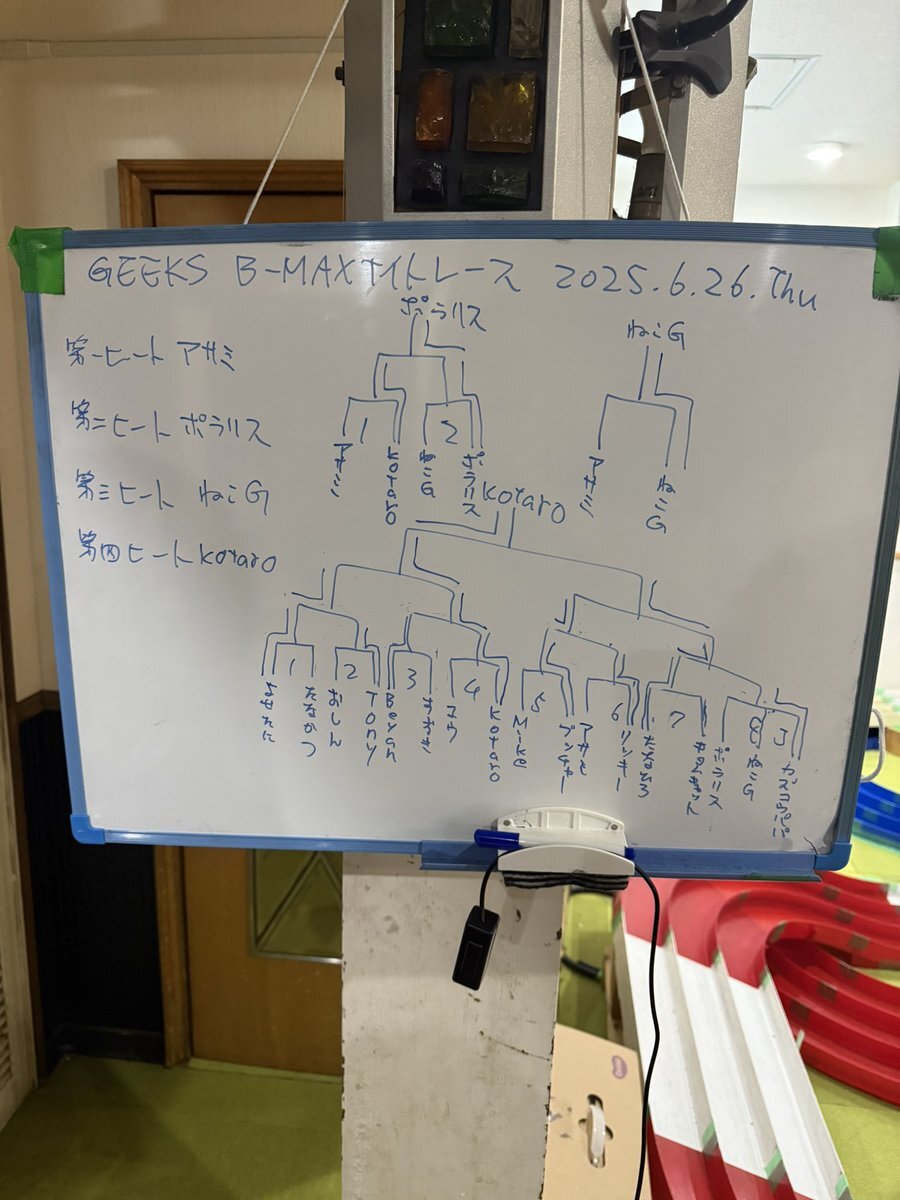 GEEKS B-MAXナイトレース 2025.6.26.Thu
第一ヒート アサミ
第二ヒート ポラリス
第三ヒート ねこG
第四ヒート kotaro
ポラリス
1
2
アサミ
kotaro
ねこG
ポラリス
ねこG
アサミ
ねこG
kotaro
1
2
3
4
5
6
7
8
よせたに
たなかつ
おしん
Tony
Beyan
すずき
ユウ
kotaro
Mike
アサミ
リンキー
ポラリス
ねこG